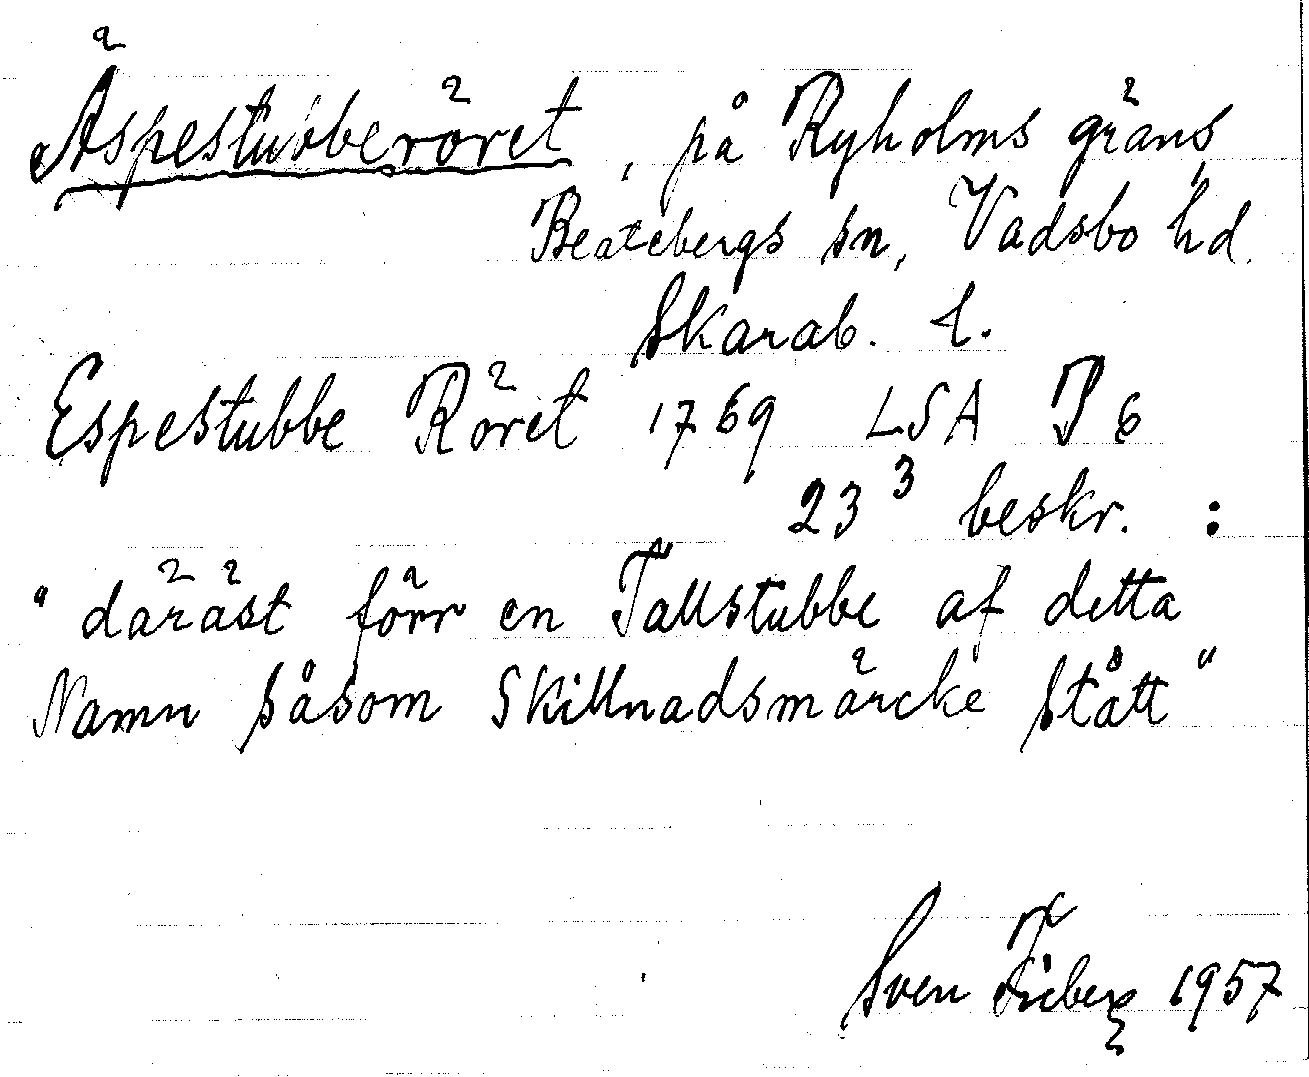 Äspestubberöret, på Ryholms gräns,
Beatebergs sn, Vadsbo hd.
Skarab. l.
Espestubbe Röret 1769 LSA P 6
23³ beskr. :
"däräst förr en Tallstubbe af detta
Namn såsom Skillnadsmärcke stått"
Sven Fiberg 1957